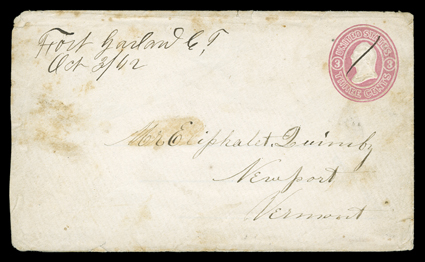 Fort Garland C, T
Oct 3/62
UNITED STATES
3 3
THREE CENTS
Mr Eliphalet Quimby
Newport
Vermont